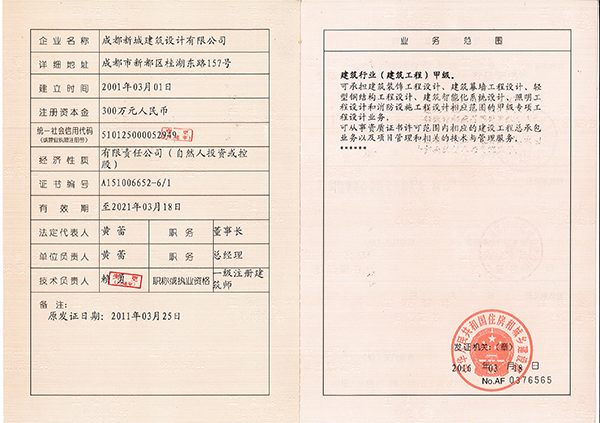 企业名称 成都新城建筑设计有限公司
详细地址 成都市新都区桂湖东路157号
建立时间 2001年03月01日
注册资本金 300万元人民币
统一社会信用代码 510125000052949
(或营业执照注册号)
经济性质 有限责任公司（自然人投资或控
股）
证书编号 A151006652-6/1
有效期 至2021年03月18日
法定代表人 黄蕾 职务 董事长
单位负责人 黄蕾 职务 总经理
技术负责人 职称或执业资格 一级注册建
筑师
备注:
原发证日期: 2011年03月25日
业务范围
建筑行业（建筑工程）甲级。
可承担建筑装饰工程设计、建筑幕墙工程设计、轻
型钢结构工程设计、建筑智能化系统设计、照明工
程设计和消防设施工程设计相应范围的甲级专项工
程设计业务。
可从事资质证书许可范围内相应的建设工程总承包
业务以及项目管理和相关的技术与管理服务。
******
中华人民共和国住房和城乡建设部
发证机关:（章）
2016 年 03 月 18 日
No.AF 0376565